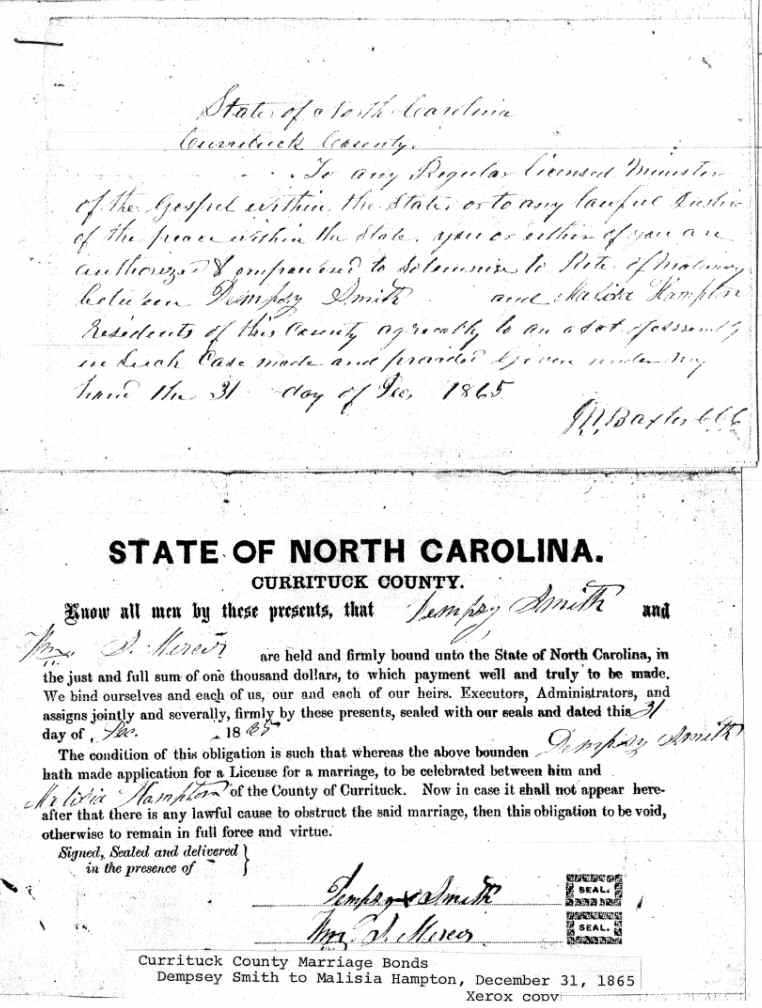 State of North Carolina
Currituck County.
To any Regular licensed Minister
of the Gospel within the State, or to any lawful Justice
of the peace within the State. you or either of you are
authorized & empowered to Solemnize to Rite of Matrimony
between Dempsy Smith and Malisia Hampton
Residents of this County agreeably to an act of assembly
in Such Case made and provided Given under my
hand the 31 day of Dec, 1865
M. Baxter CCC
STATE OF NORTH CAROLINA.
CURRITUCK COUNTY.
Know all men by these presents, that Dempsy Smith and
Wm. S. Mercer are held and firmly bound unto the State of North Carolina, in
the just and full sum of one thousand dollars, to which payment well and truly to be made.
We bind ourselves and each of us, our and each of our heirs. Executors, Administrators, and
assigns jointly and severally, firmly by these presents, sealed with our seals and dated this 31
day of Dec. 1865
The condition of this obligation is such that whereas the above bounden Dempsy Smith
hath made application for a License for a marriage, to be celebrated between him and
Malisia Hampton of the County of Currituck. Now in case it shall not appear here-
after that there is any lawful cause to obstruct the said marriage, then this obligation to be void,
otherwise to remain in full force and virtue.
Signed, Sealed and delivered
in the presence of
Dempsy Smith SEAL.
Wm. S. Mercer SEAL.
Currituck County Marriage Bonds
Dempsey Smith to Malisia Hampton, December 31, 1865
Xerox copy